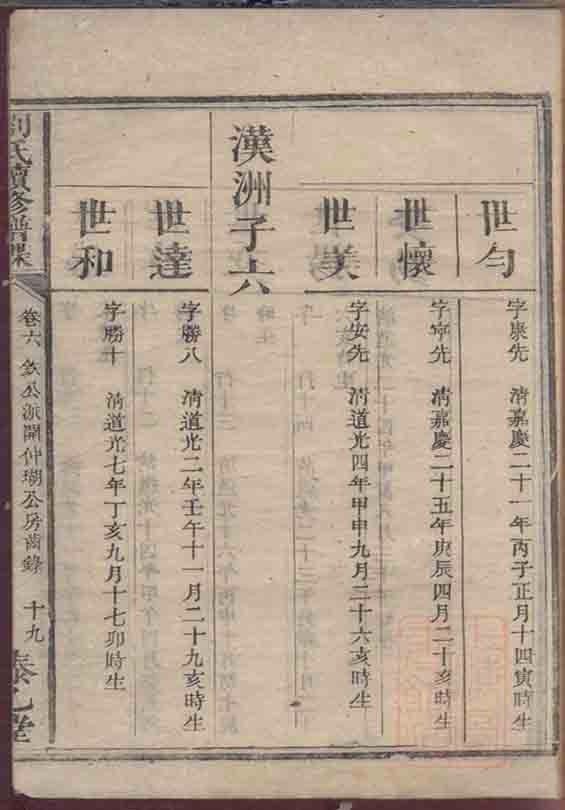 世勻
字康先 清嘉慶二十一年丙子正月十四寅時生
世懷
字寧先 清嘉慶二十五年庚辰四月二十亥時生
世美
字安先 清道光四年甲申九月二十六亥時生
漢洲子六
世達
字勝八 清道光二年壬午十一月二十九亥時生
世和
字勝十 清道光七年丁亥九月十七卯時生
劉氏續修譜牒
卷六 欽公派開仲瑚公房齒錄
十九
堂